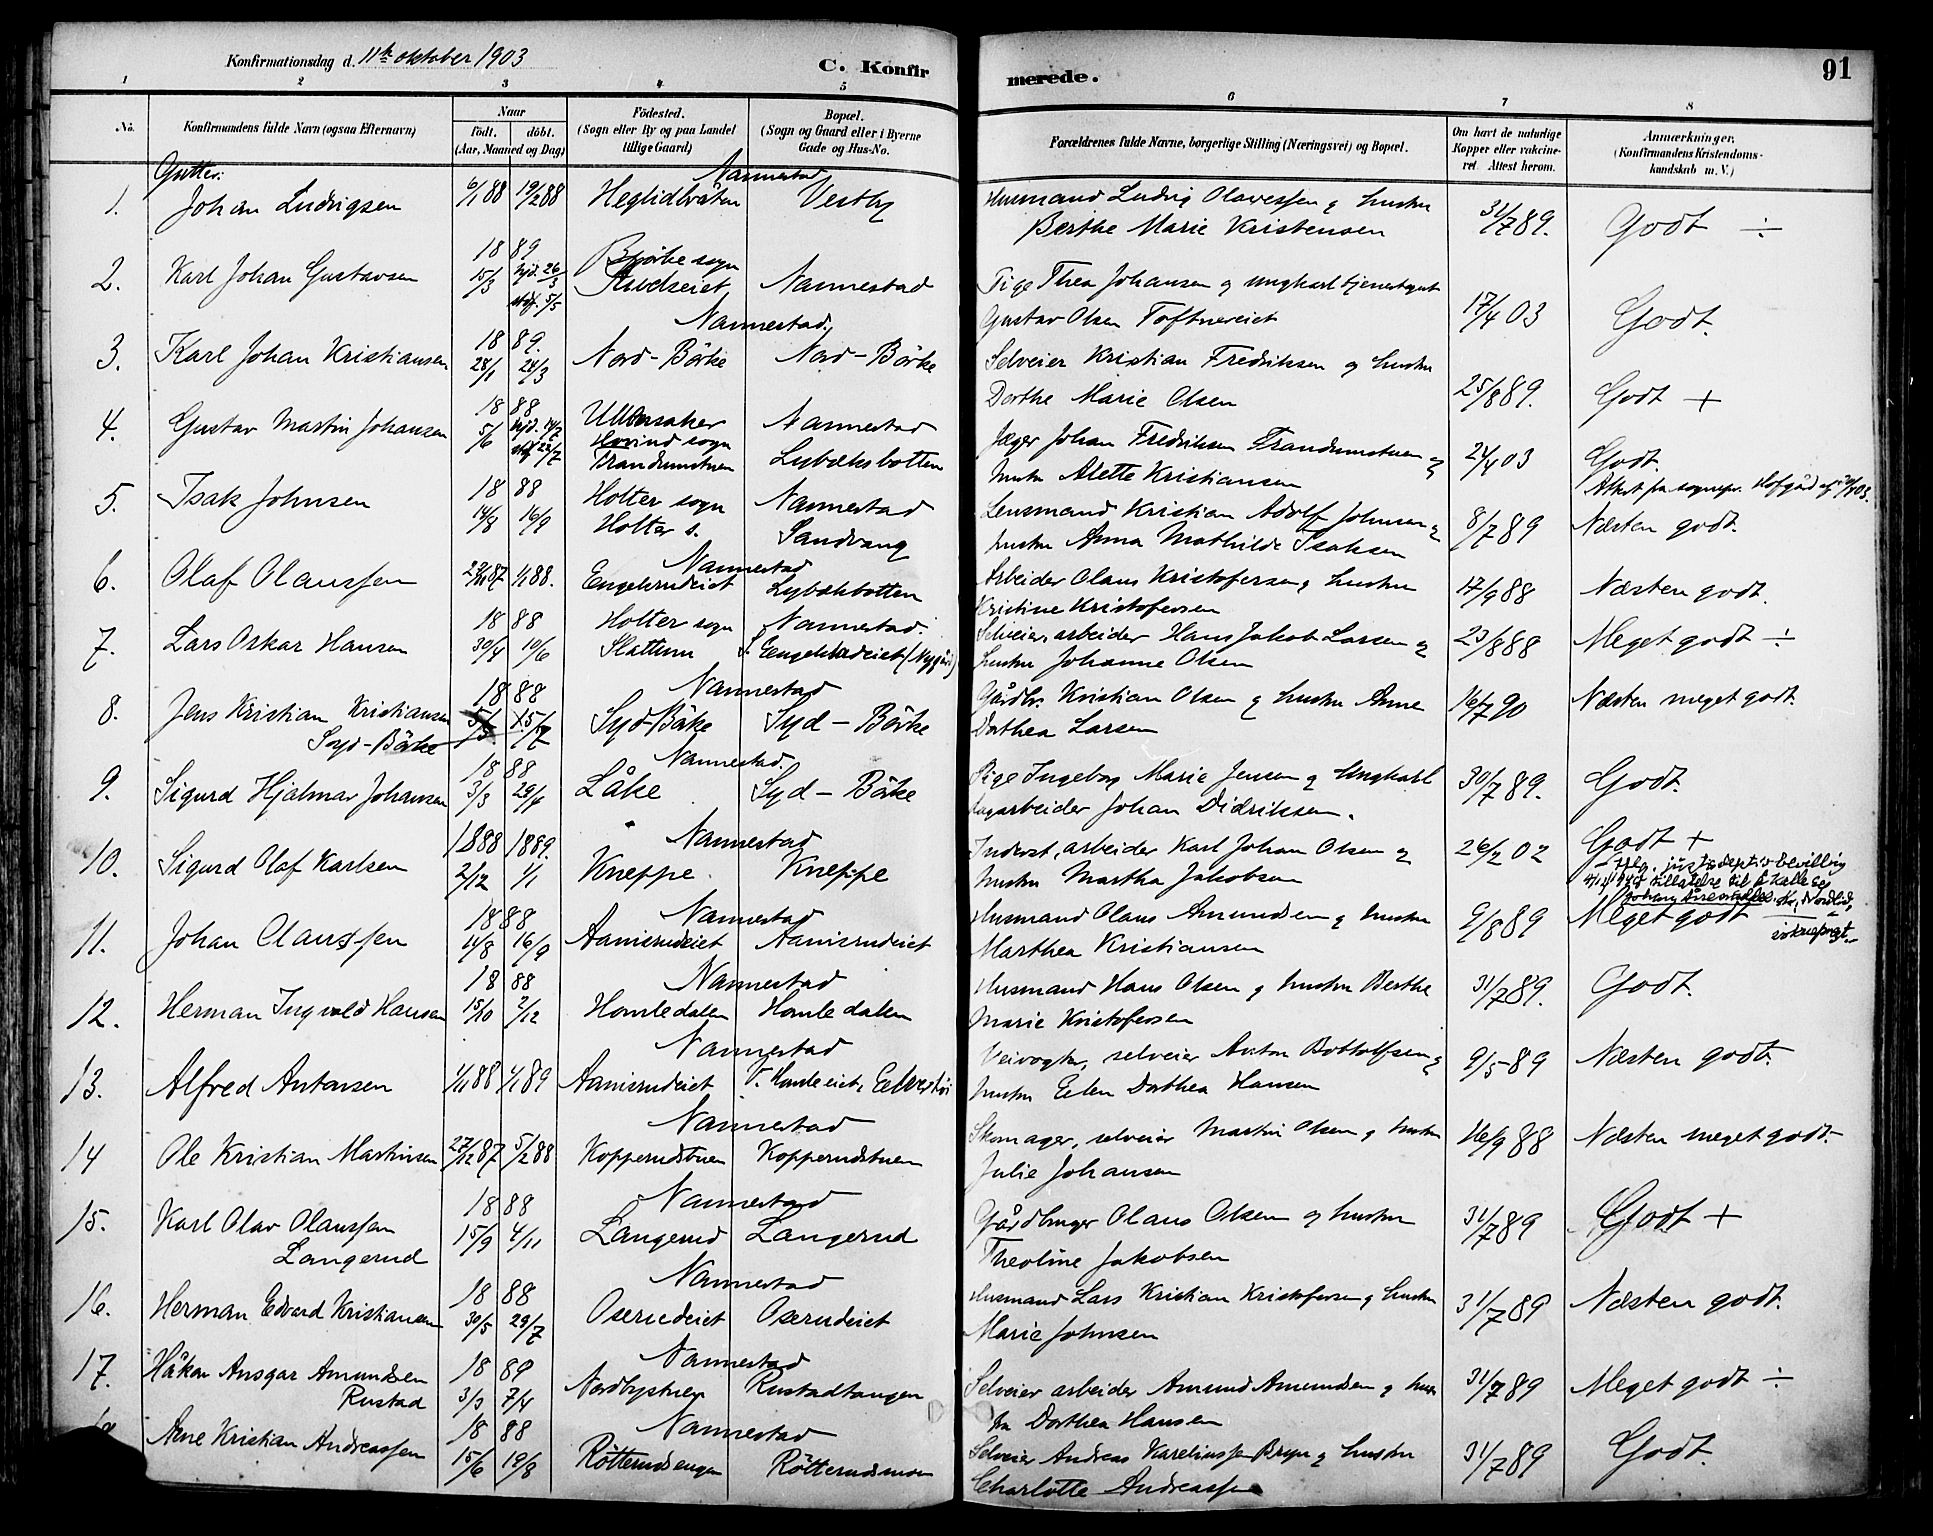 Konfirmationsdag d. 11te oktober 1903
C. Konfirmerede.
91
1 2 3 4 5 6 7 8
No.
Konfirmandens fulde Navn (ogsaa Efternavn)
Naar
født. døbt.
(Aar, Maaned og Dag)
Födested.
(Sogn eller By og paa Landet tillige Gaard)
Bopæl.
(Sogn og Gaard eller i Byerne Gade og Hus-No.
Forældrenes fulde Navne, borgerlige Stilling (Næringsvei) og Bopæl.
Om havt de naturlige Kopper eller vakcineret. Attest herom.
Anmærkninger.
(Konfirmandens Kristendomskundskab m. V.)
Gutter:
Nannestad
1. Johan Ludvigsen 6/1 88 19/2 88 Heglidbråten Vestby Husmand Ludvig Olavessen og hustru
Berthe Marie Kristensen 31/7 89. Godt ÷
2. Karl Johan Gustavsen 1889 15/3 hjd. 26/3 stdf. 5/5 Bjørke sogn Nannestad Pige Thea Johansen og ungkarl tjenestegut
Gustav Olsen Toftnereiet 17/4 03 Godt.
Nannestad.
3. Karl Johan Kristiansen 1889. 28/1 24/3 Nord-Börke Nord-Börke Selveier Kristian Fredriksen og hustru
Dorthe Marie Olsen 25/8 89. Godt +
4. Gustav Martin Johansen 1888 5/6 Ullensaker Hovind sogn Trandumstuen Nannestad Lybæksbotten Jæger Johan Fredriksen Trandumstuen og
hustru Alette Kristiansen 24/4 03 Godt.
Attest fra sognepr. Hofgård
5. Isak Johnsen 1888 14/8 16/9 Holter sogn Holter s. Nannestad Sandvang Lensmand Kristian Adolf Johnsen og
hustru Anna Mathilde Isaksen 8/7 89 Næsten godt.
Nannestad
6. Olaf Olaussen 87 1/1 88. Engelsrudeiet Lybækbotten Arbeider Olaus Kristofersen og hustru
Kristine Kristofersen 17/9 88 Næsten godt.
7. Lars Oskar Hansen 1888 30/4 10/6 Holter sogn Slattum Nannestad. S. Engelsrudeiet (Nygård) Selveier, arbeider Hans Jakob Larsen og
hustru Johanne Olsen 23/8 88 Meget godt ÷
Nannestad
8. Jens Kristian Kristiansen
Syd-Börke 1888 Syd-Börke Syd-Börke Gårdbr. Kristian Olsen og hustru Anne
Dorthea Larsen 16/7 90 Næsten meget godt.
Nannestad.
9. Sigurd Hjalmar Johansen 1888 3/3 29/4 Låke Syd-Börke Pige Ingeborg Marie Jensen og Ungkarl
dagarbeider Johan Didriksen. 30/7 89. Godt.
Nannestad
10. Sigurd Olaf Karlsen 1888 1889. 2/12 1/1 Kneppe Kneppe Inderst, arbeider Karl Johan Olsen og
hustru Martha Jakobsen 26/2 02 Godt +
Nannestad
11. Johan Olaussen 1888 4/8 16/9 Aamisrudeiet Aamisrudeiet Husmand Olaus Amundsen og hustru
Marthea Kristiansen 9/8 89 Meget godt
Nannestad
12. Herman Ingvald Hansen 1888 15/10 2/12 Homledalen Homledalen Husmand Hans Olsen og hustru Berthe
Marie Kristofersen 31/7 89. Godt.
Nannestad
13. Alfred Antonsen 1/11 88 4/1 89 Aamisrudeiet V. Homleeiet, Veivogter, selveier Anton Bottolfsen og
hustru Elen Dorthea Hansen 9/5 89 Næsten godt.
Nannestad
14 Ole Kristian Martinsen 27/12 87 5/2 88 Kopperudstuen Kopperudstuen Skomager, selveier Martin Olsen og hustru
Julie Johansen 16/9 88 Næsten meget godt.
Nannestad
15. Karl Olav Olaussen
Langerud 1888 15/9 4/11 Langerud Langerud Gårdbruger Olaus Olsen og hustru
Theoline Jakobsen 31/7 89 Godt +
Nannestad
16. Herman Edvard Kristiansen 1888 30/5 29/7 Oserudeiet Oserudeiet Husmand Lars Kristian Kristofersen og hustru
Marie Johnsen 31/7 89 Næsten godt.
Nannestad
17. Håkon Ansgar Amundsen
Rustad 1889 3/3 7/4 Nordbystuen Rustadtangen Selveier arbeider Amund Amundsen og hustru
Dorthea Hansen 31/7 89 Meget godt ÷
Nannestad
18 Arne Kristian Andreassen 1888 15/6 19/8 Rötterudsengen Rötterudsmoen Selveier Andreas Kareliussen Bryn og hustru
Charlotte Andreassen 31/7 89 Godt.